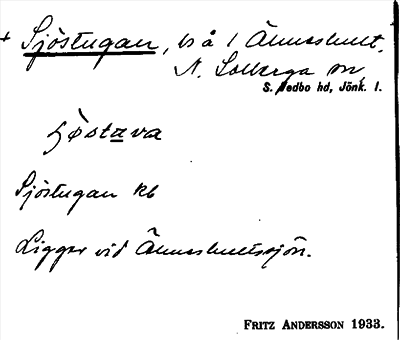 + Sjöstugan, bs å 1 Älmeshult,
N. Solberga sn,
S. Vedbo hd, Jönk. l.
ʃö̀stava
Sjöstugan kb
Ligger vid Älmeshultssjön.
FRITZ ANDERSSON 1933.